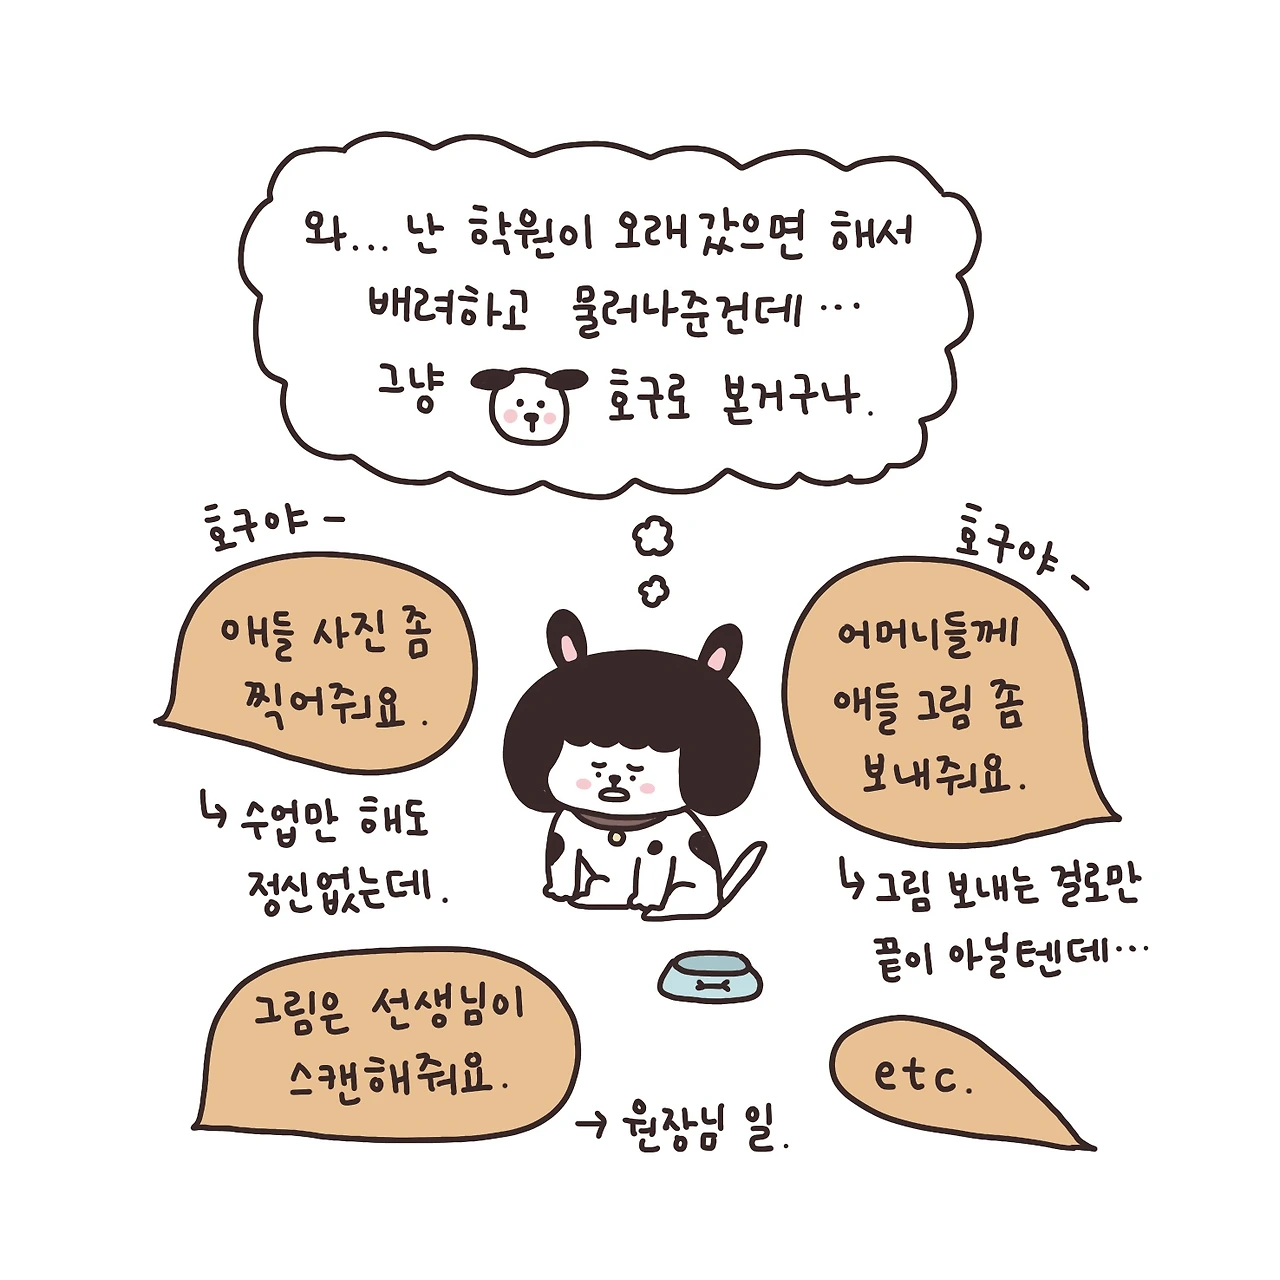 와... 난 학원이 오래갔으면 해서
배려하고 물러나준건데...
그냥 호구로 본거구나.
호구야-
애들 사진 좀
찍어줘요.
↳ 수업만 해도
정신없는데.
호구야-
어머니들께
애들 그림 좀
보내줘요.
↳ 그림 보내는 걸로만
끝이 아닐텐데...
그림은 선생님이
스캔해줘요.
→ 원장님 일.
etc.